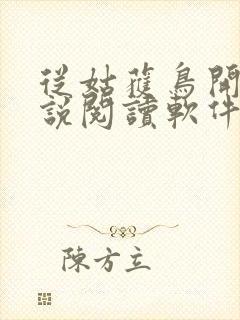 從姑獲鳥開
說閱讀軟件
陳方立